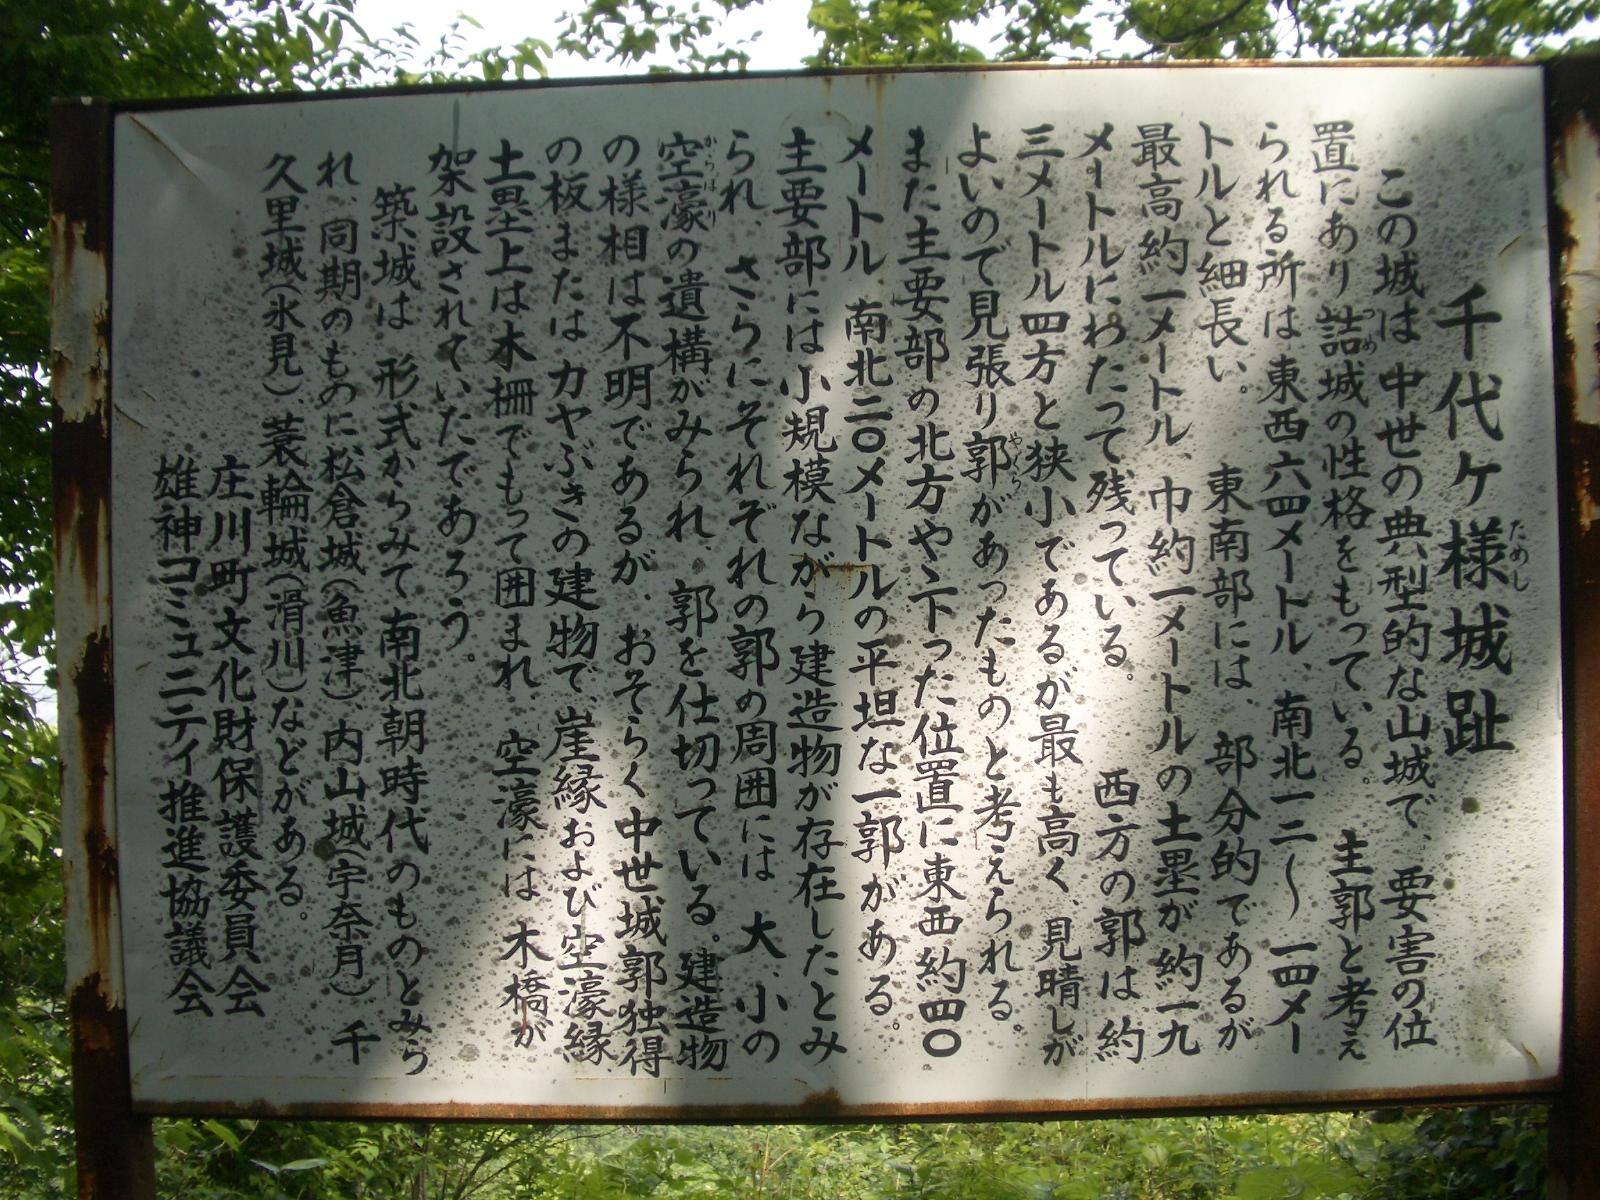 千代ケ様城趾
ためし
この城は中世の典型的な山城で、要害の位
置にあり詰城の性格をもっている。主郭と考え
つめ
られる所は東西六四メートル、南北一二〜一四メー
トルと細長い。東南部には、部分的であるが
最高約一メートル、巾約一メートルの土塁が約一九
メートルにわたって残っている。西方の郭は約
三メートル四方と狭小であるが最も高く、見晴しが
よいので見張り郭があったものと考えられる。
やぐら
また主要部の北方や下った位置に東西約四〇
メートル 南北二〇メートルの平坦な一郭がある。
主要部には小規模ながら建造物が存在したとみ
られ、さらにそれぞれの郭の周囲には 大、小の
空濠の遺構がみられ、郭を仕切っている。建造物
からぼり
の様相は不明であるが、おそらく中世城郭独得
の板またはカヤぶきの建物で、崖縁および空濠縁
土塁上は木柵でもって囲まれ、空濠には 木橋が
架設されていたであろう。
築城は 形式からみて南北朝時代のものとみら
れ、同期のものに松倉城(魚津)、内山城(宇奈月) 千
久里城(氷見)、蓑輪城(滑川)などがある。
庄川町文化財保護委員会
雄神コミュニティ推進協議会